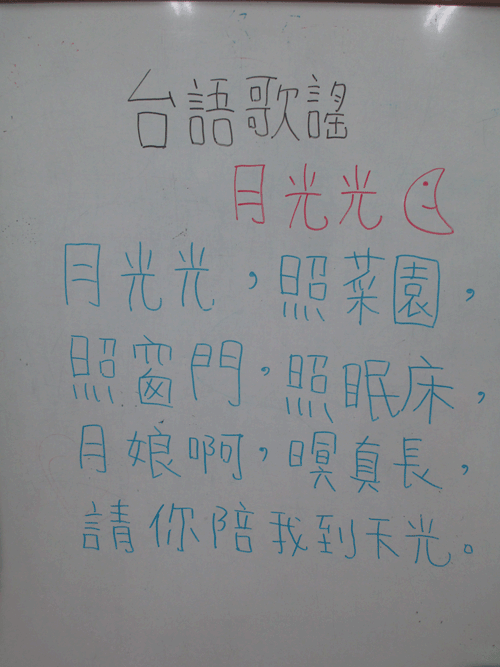 台語歌謠
月光光
月光光，照菜園，
照窗門，照眠床，
月娘啊，暝真長，
請你陪我到天光。